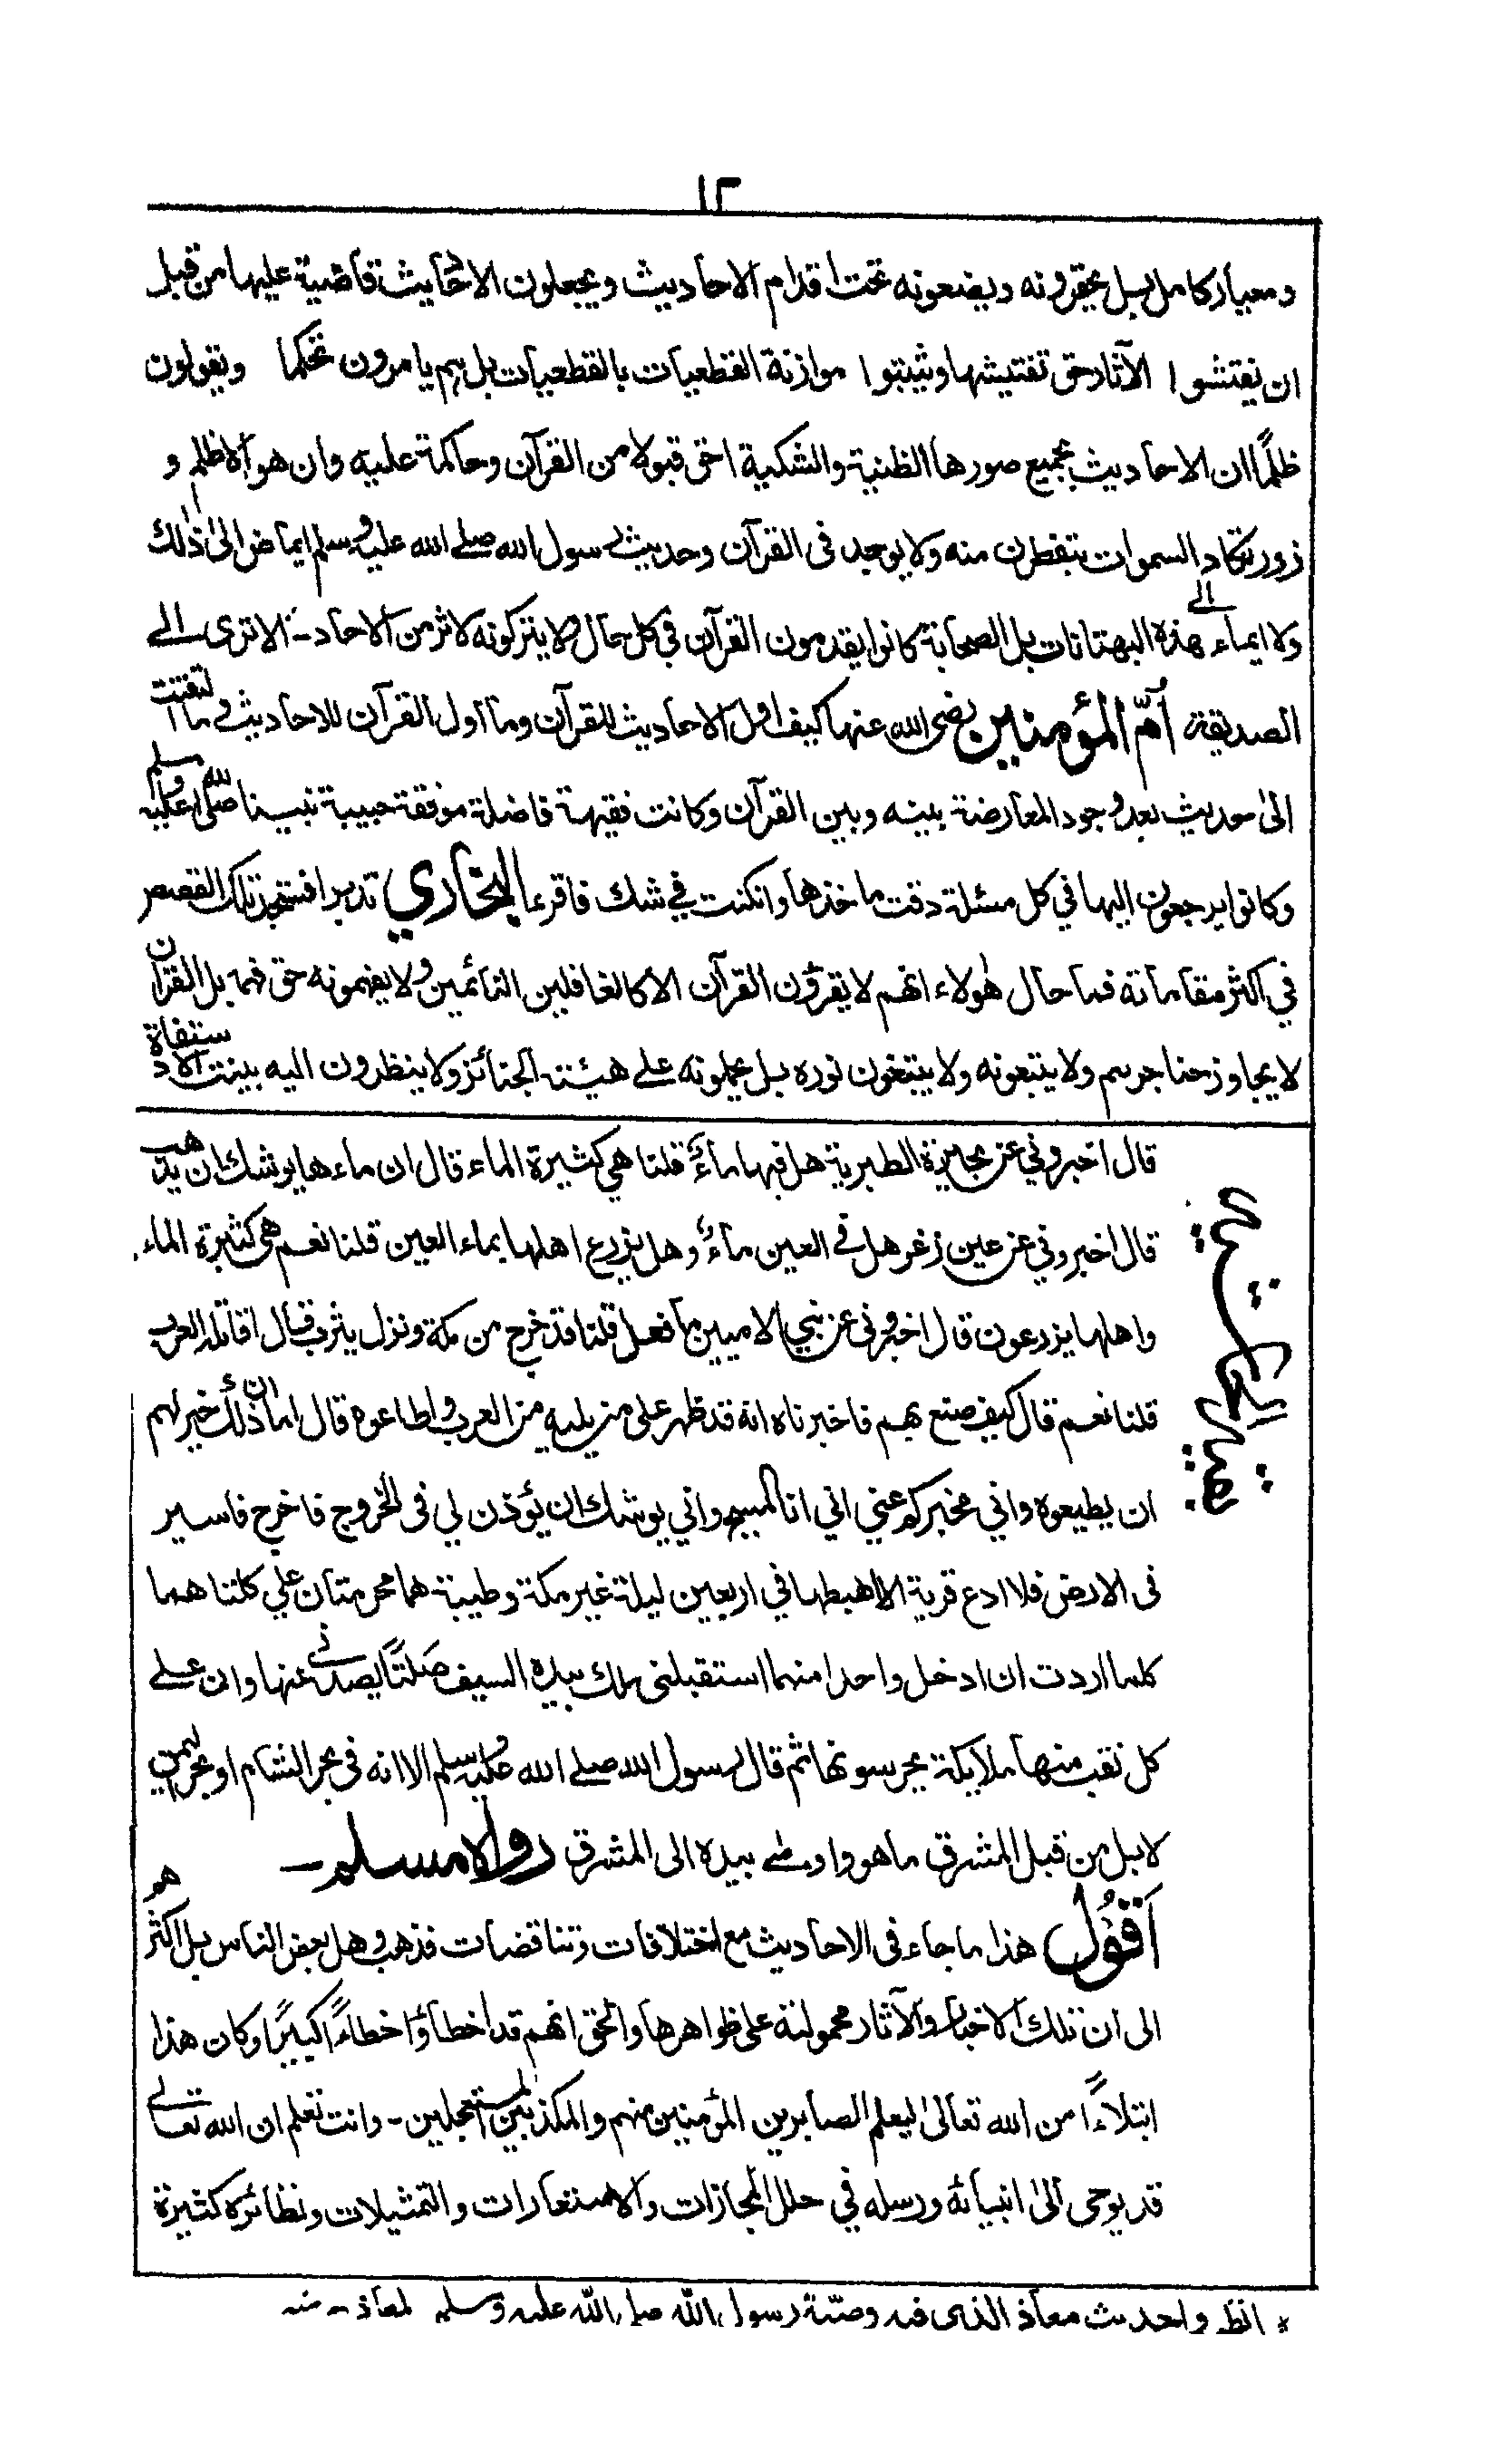 ١٢
ومعيار كامل بل يحقرونه ويضعونه تحت اقدام الاحاديث ويجعلون الاحاديث قاضية عليها من قبل
ان يفتشوا الآثار حق تفتيشها ويثبتوا موازنة القطعيات بالقطعيات بل هم يامرون تحكما ويقولون
ظلمًا ان الاحاديث بجميع صورها الظنية والشكية احق قبولا من القرآن وحاكمة عليه وان هو الا ظلم و
زور تكاد السموات يتفطرن منه ولا يوجد فى القرآن وحديث رسول الله صلے الله عليه وسلم ايماض الى ذلك
ولا ايماء الے هذه البهتانات بل الصحابة كانوا يقدمون القرآن في كل حال ولا يتركونه لاثر من الاحاد - الا ترى الے
الصديقة أمّ المؤمنين رضى الله عنها كيف اول الاحاديث للقرآن وما اول القرآن للاحاديث وما التفتت
الى حديث بعد وجود المعارضة بينه وبين القرآن وكانت فقيهة فاضلة موفقة حبيبة نبينا صلى الله عليه وسلم
وكانوا يرجعون اليها في كل مسئلة دقت ماخذها وانكنت في شك فاقرء البخاري تدبرا فستجد تلك القصص
في اكثر مقاماته فما حال هؤلاء انهم لا يقرؤن القرآن الا كالغافلين النائمين ولا يفهمونه حق فهمه بل القرآن
لا يجاوز حناجرهم ولا يتبعونه ولا يبتغون نوره بل يحملونه علے هيئة الجنائز ولا ينظرون اليه بنية الاستفادة
قال اخبروني عن بحيرة الطبرية هل فيها ماءٌ قلنا هي كثيرة الماء قال ان ماءها يوشك ان يذهب
قال اخبروني عن عين زغر هل في العين ماءٌ وهل يزرع اهلها بماء العين قلنا نعم هي كثيرة الماء
واهلها يزرعون قال اخبرونى عن نبي الاميين ما فعل قلنا قد خرج من مكة ونزل يثرب قال اقاتله العرب
قلنا نعم قال كيف صنع بهم فاخبرناه انه قد ظهر على من يليه من العرب واطاعوه قال اما ان ذلك خير لهم
ان يطيعوه واني مخبركم عني اني انا المسيح واني يوشك ان يؤذن لي فى الخروج فاخرج فاسير
فى الارض فلا ادع قرية الا هبطها في اربعين ليلة غير مكة وطيبة هما محرمتان علي كلتاهما
كلما اردت ان ادخل واحدا منهما استقبلنى ملك بيده السيف صَلتًا يصدنے عنها وان علے
كل نقب منها ملايكة يحرسونها ثم قال رسول الله صلے الله عليه وسلم الا انه فى بحر الشام او بحر اليمن
لا بل من قبل المشرق ما هو واومئے بيده الى المشرق رواه مسلم -
اَقُوْلُ هذا ما جاء فى الاحاديث مع اختلافات وتناقضات فذهب وهل بعض الناس بل اكثرهم
الى ان تلك الاخبار والآثار محمولة على ظواهرها والحق انهم قد اخطأوا خطاءً كبيرًا وكان هذا
ابتلاءً من الله تعالى ليعلم الصابرين المؤمنين منهم والمكذبين المستعجلين - وانت تعلم ان الله تعالے
قد يوحى الى انبيائه ورسله في حلل المجازات والاستعارات والتمثيلات ونظائره كثيرة
* انظروا حديث معاذ الذى فيه وصيّة رسول الله صلى الله عليه وسلم لمعاذ - منه